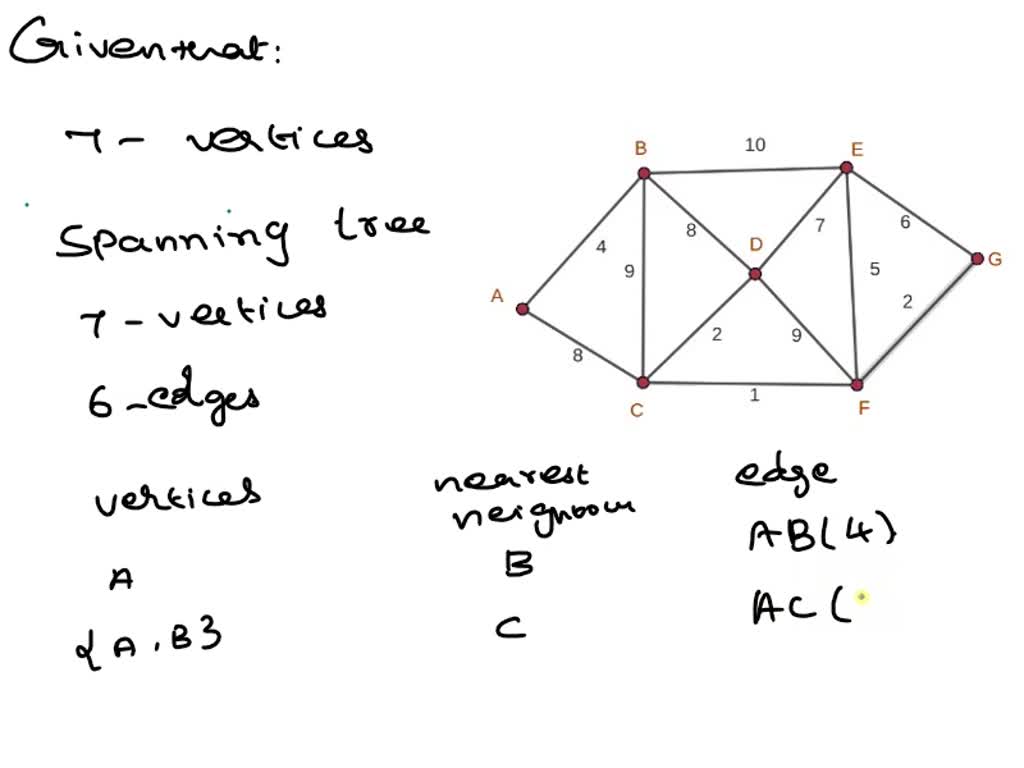 Given that:
7 - vertices
Spanning tree
7 - vertices
6 - edges
B 10 E
8 D 7 6
4 9 5 G
A 2
2 9
8
C 1 F
vertices nearest neighbour edge
A B AB(4)
{A, B} C AC(